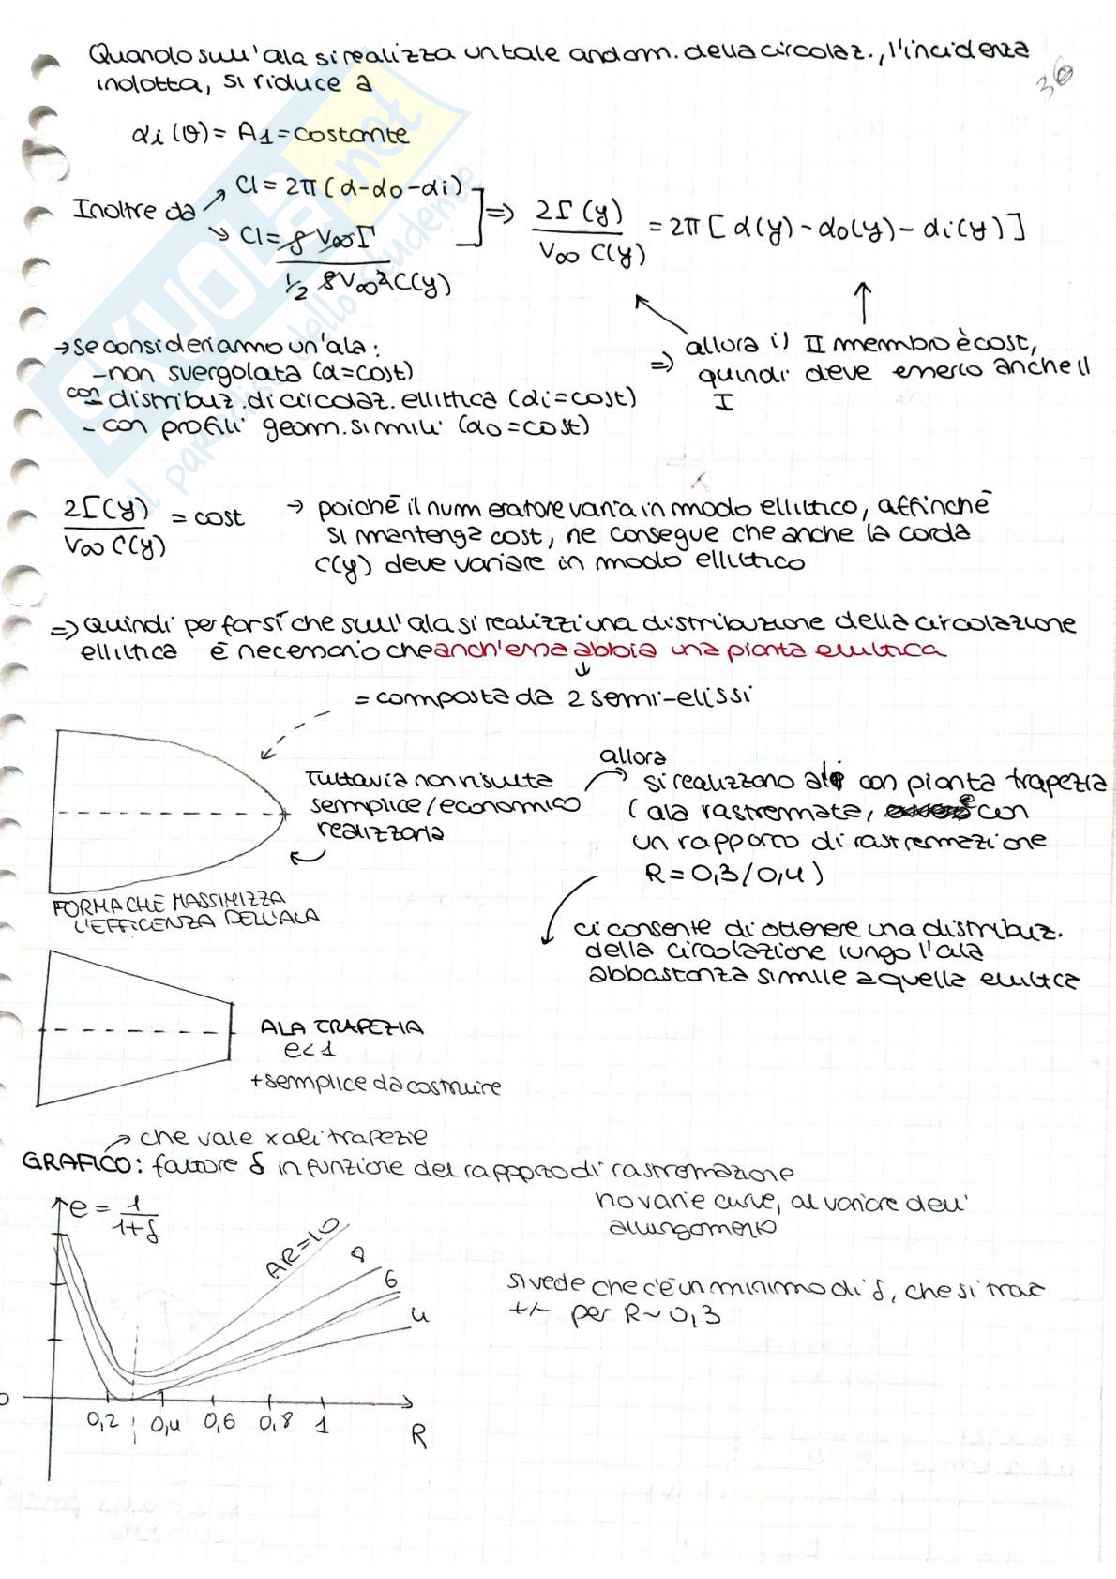 Quando sull'ala si realizza un tale andam. della circolaz., l'incidenza
indotta, si riduce a
36
αi(θ) = A1 = costante
Inoltre da
Cl = 2π(α-αo-αi)
Cl = ρ V∞ Γ / ½ ρ V∞² C(y)
⇒ 2Γ(y) / V∞ C(y) = 2π[α(y) - αo(y) - αi(y)]
→ se consideriamo un'ala:
- non svergolata (α=cost)
con distribuz. di circolaz. ellittica (αi=cost)
- con profili geom. simili (αo=cost)
⇒ allora il II membro è cost,
quindi deve esserlo anche il
I
2Γ(y) / V∞ C(y) = cost
→ poichè il numeratore varia in modo ellittico, affinchè
si mantenga cost, ne consegue che anche la corda
C(y) deve variare in modo ellittico
⇒ quindi per far sí che sull'ala si realizzi una distribuzione della circolazione
ellittica è necessario che anch'essa abbia una pianta ellittica
= composta da 2 semi-elissi
Tuttavia non risulta
semplice/economico
realizzarla
allora
si realizzano ali con pianta trapezia
(ala rastremata, con
un rapporto di rastremazione
R = 0,3/0,4)
FORMA CHE MASSIMIZZA
L'EFFICENZA DELL'ALA
ci consente di ottenere una distribuz.
della circolazione lungo l'ala
abbastanza simile a quella ellittica
ALA TRAPEZIA
e<1
+ semplice da costruire
→ che vale x ali trapezie
GRAFICO: fattore δ in funzione del rapporto di rastremazione
ho varie curve, al variare dell'
allungamento
e = 1 / 1+δ
AR=10
8
6
4
si vede che c'è un minimo di δ, che si trova
+/- per R~0,3
0
0,2
0,4
0,6
0,8
1
R
SKUOLA.net
il paradiso dello studente